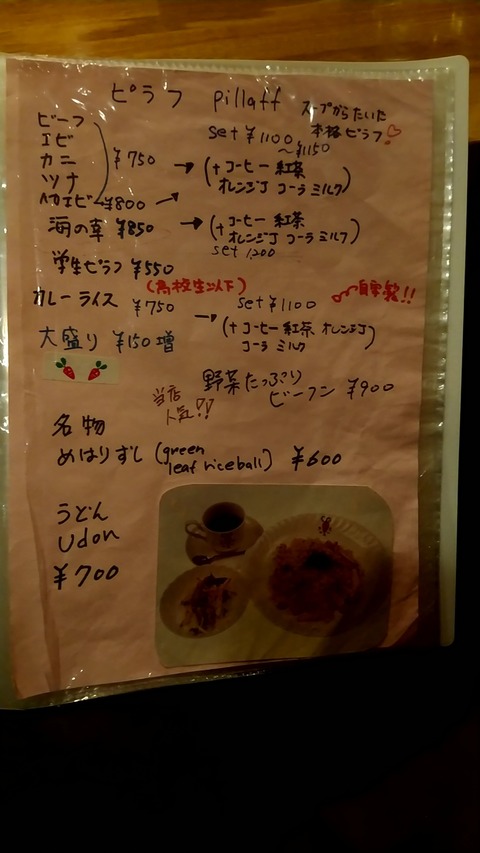 ピラフ pillaff
スープからたいた
本格ピラフ♡
set ¥1100
～¥1150
ビーフ
エビ
カニ
ツナ
¥750
→ (+コーヒー 紅茶
オレンジJ コーラ ミルク)
エビ ¥800
海の幸 ¥850
→ (+コーヒー 紅茶
オレンジJ コーラ ミルク)
set 1,200
学生ピラフ ¥550
(高校生以下)
カレーライス ¥750
set ¥1100
自家製!!
→ (+コーヒー 紅茶 オレンジJ
コーラ ミルク)
大盛り ¥150増
当店
人気!!
野菜たっぷり
ビーフン ¥900
名物
めはりずし (green
leaf rice ball) ¥600
うどん
Udon
¥700